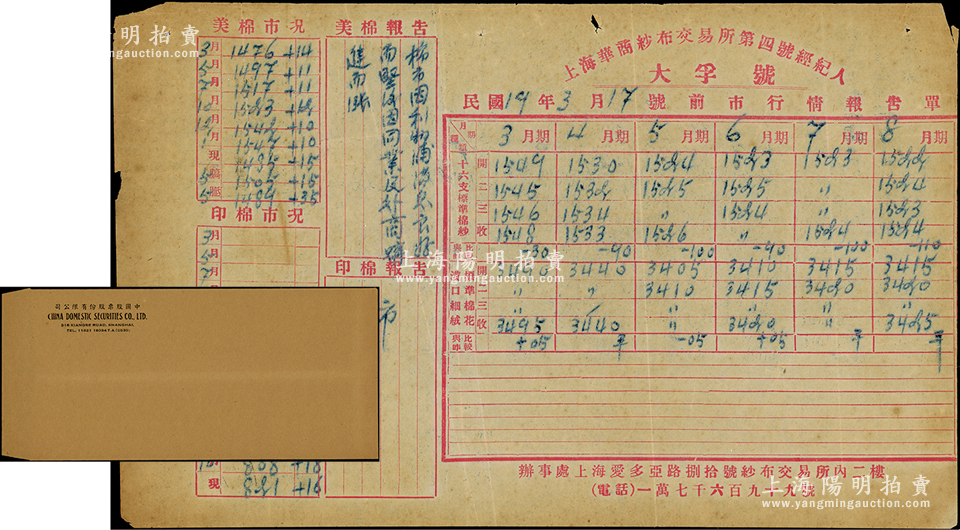 上海華商紗布交易所第四號經紀人
大孚號
民國19年3月17號前市行情報告單
月期 3月期 4月期 5月期 6月期 7月期 8月期
十六支標準棉紗
開 1549 1530 1524 1523 1523 1522
二 1545 1532 1525 1525 〃 1524
三 1546 1534 〃 1524 〃 1523
收 1548 1533 1526 〃 1524 1524
與昨比較 -30 -90 -100 -90 -100 -110
漢口細絨標準棉花
開 3490 3440 3405 3410 3415 3415
二 〃 〃 3410 3415 3420 3420
三 〃 〃 〃 〃 〃 〃
收 3495 3440 〃 3420 〃 3425
與昨比較 +05 平 -05 +05 平 平
辦事處上海愛多亞路捌拾號紗布交易所內二樓
(電話)一萬七千六百九十九號
美棉報告
棉市因利物浦消息良好
而堅後因同業及外商購
進而漲
印棉報告
市
美棉市況
3月 1476 +14
5月 1497 +11
7月 1517 +11
10月 1523 +12
12月 1542 +10
現
印棉市況
3月
5月
7月
808 +18
現
中國股票股份有限公司
CHINA DOMESTIC SECURITIES CO., LTD.
218 KIANGSE ROAD, SHANGHAI
上海陽明拍賣
www.yangmingauction.com
上海陽明拍賣
www.yangmingauction.com
上海陽明拍賣
www.yangmingauction.com